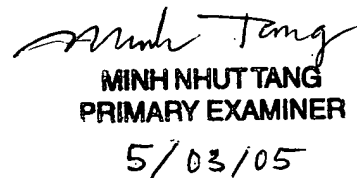 Minh Tang
MINH NHUT TANG
PRIMARY EXAMINER
5/03/05